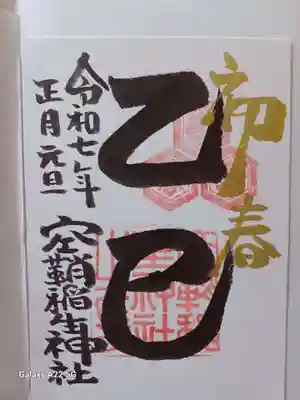 初春
乙巳
令和七年
正月元旦
穴鞘稲生神社
Galaxy A22 5G